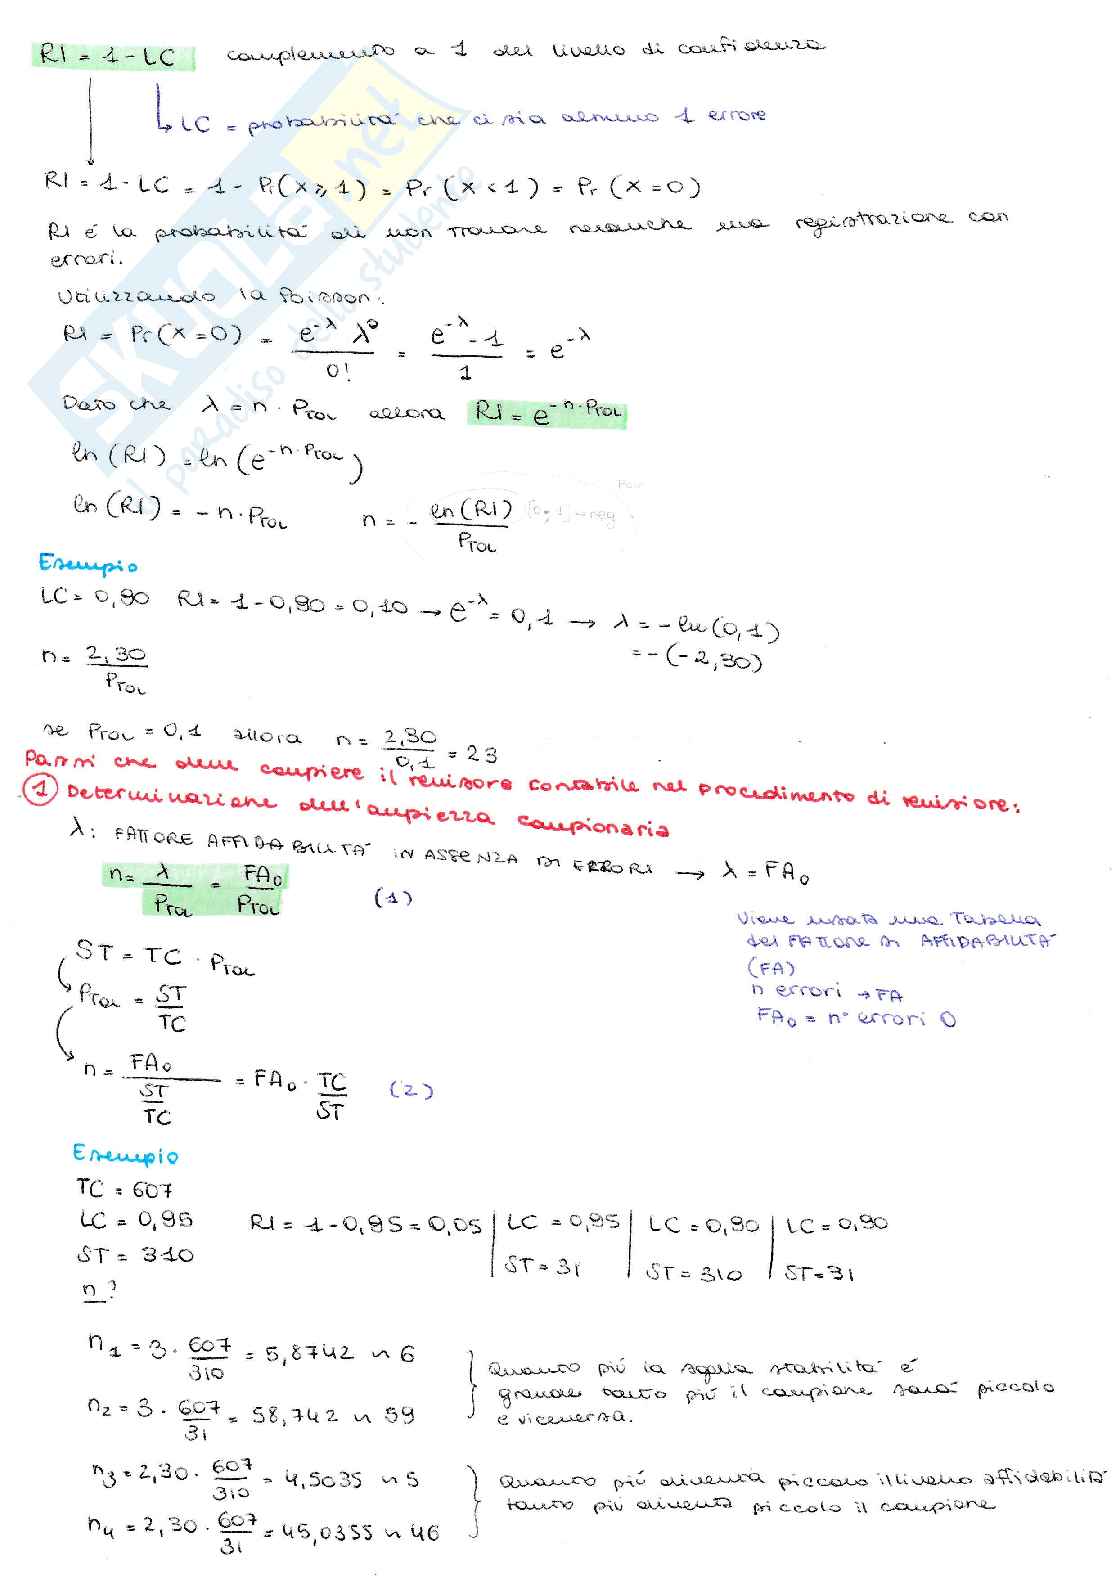 RI = 1 - LC complemento a 1 del livello di confidenza
LC = probabilità che ci sia almeno 1 errore
RI = 1 - LC = 1 - Pr(X ≥ 1) = Pr (X < 1) = Pr (X = 0)
RI é la probabilità di non trovare neanche una registrazione con
errori.
Utilizzando la Poisson:
RI = Pr(X = 0) = e^-λ λ^0 / 0! = e^-λ · 1 / 1 = e^-λ
Dato che λ = n · PTOL allora RI = e^-n·PTOL
ln (RI) = ln (e^-n·PTOL)
ln (RI) = - n · PTOL n = - ln(RI) / PTOL
Esempio
LC = 0,90 RI = 1 - 0,90 = 0,10 → e^-λ = 0,1 → λ = - ln(0,1)
= - (-2,30)
n = 2,30 / PTOL
se PTOL = 0,1 allora n = 2,30 / 0,1 = 23
Passi che deve compiere il revisore contabile nel procedimento di revisione:
1 Determinazione dell'ampiezza campionaria
λ: FATTORE AFFIDABILITÀ IN ASSENZA DI ERRORI → λ = FA0
n = λ / PTOL = FA0 / PTOL (1)
Viene usata una Tabella
del FATTORE DI AFFIDABILITÀ
(FA)
n errori → FA
FA0 = n° errori 0
ST = TC · PTOL
PTOL = ST / TC
n = FA0 / (ST / TC) = FA0 · TC / ST (2)
Esempio
TC = 607
LC = 0,95 RI = 1 - 0,95 = 0,05 | LC = 0,95 | LC = 0,90 | LC = 0,90
ST = 310 | ST = 31 | ST = 310 | ST = 31
n ?
n1 = 3 · 607 / 310 = 5,8742 ~ 6
n2 = 3 · 607 / 31 = 58,742 ~ 59
Quanto più la soglia stabilità é
grande tanto più il campione sarà piccolo
e viceversa.
n3 = 2,30 · 607 / 310 = 4,5035 ~ 5
n4 = 2,30 · 607 / 31 = 45,0355 ~ 46
Quanto più diventa piccolo il livello affidabilità
tanto più diventa piccolo il campione
SKUOLA.net
il paradiso dello studente